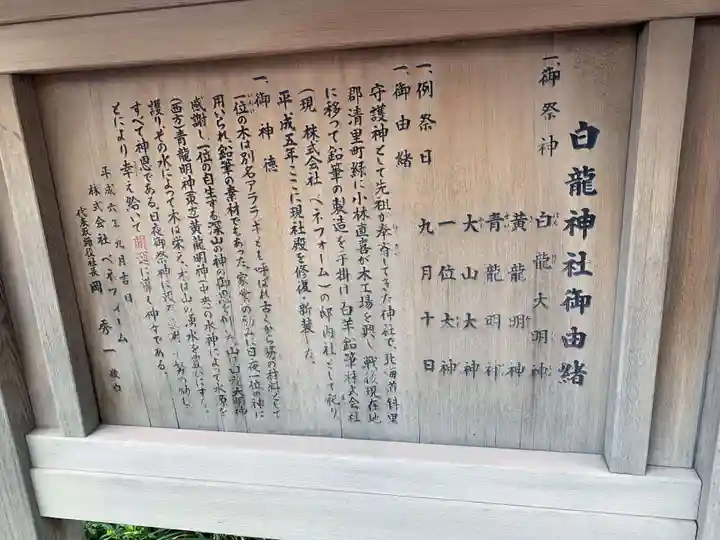 白龍神社御由緒
一、御祭神
白龍大明神
黄龍明神
青龍明神
大山大神
一位大神
一、例祭日 九月十日
一、御由緒
守護神として先祖が奉斎してきた神社で、北海道斜里
郡清里町緑に小林直喜が木工場を興し、戦後現在地
に移つて鉛筆の製造を手掛け白羊鉛筆株式会社
(現 株式会社 ベネフォーム)の邸内社として祀り
平成五年ここに現社殿を修復・新装した。
一、御神徳
一位の木は別名アララギとも呼ばれ古くから笏の材料として
用いられ鉛筆の素材でもあった。家業の 日夜一位の神に
感謝し、一位の自生する深山の神の御恩を 山は白龍大明神
(西方)青龍明神(東方)黄龍明神(中央)の水神によって水源を
護りその水によって木は栄え、木は山の湧水を豊かにする。
すべて神恩である。日夜御祭神に
とにより幸え給いて開運に導く神々である。
平成六年九月吉日
株式会社 ベネフォーム
代表取締役社長 岡 秀一 敬白